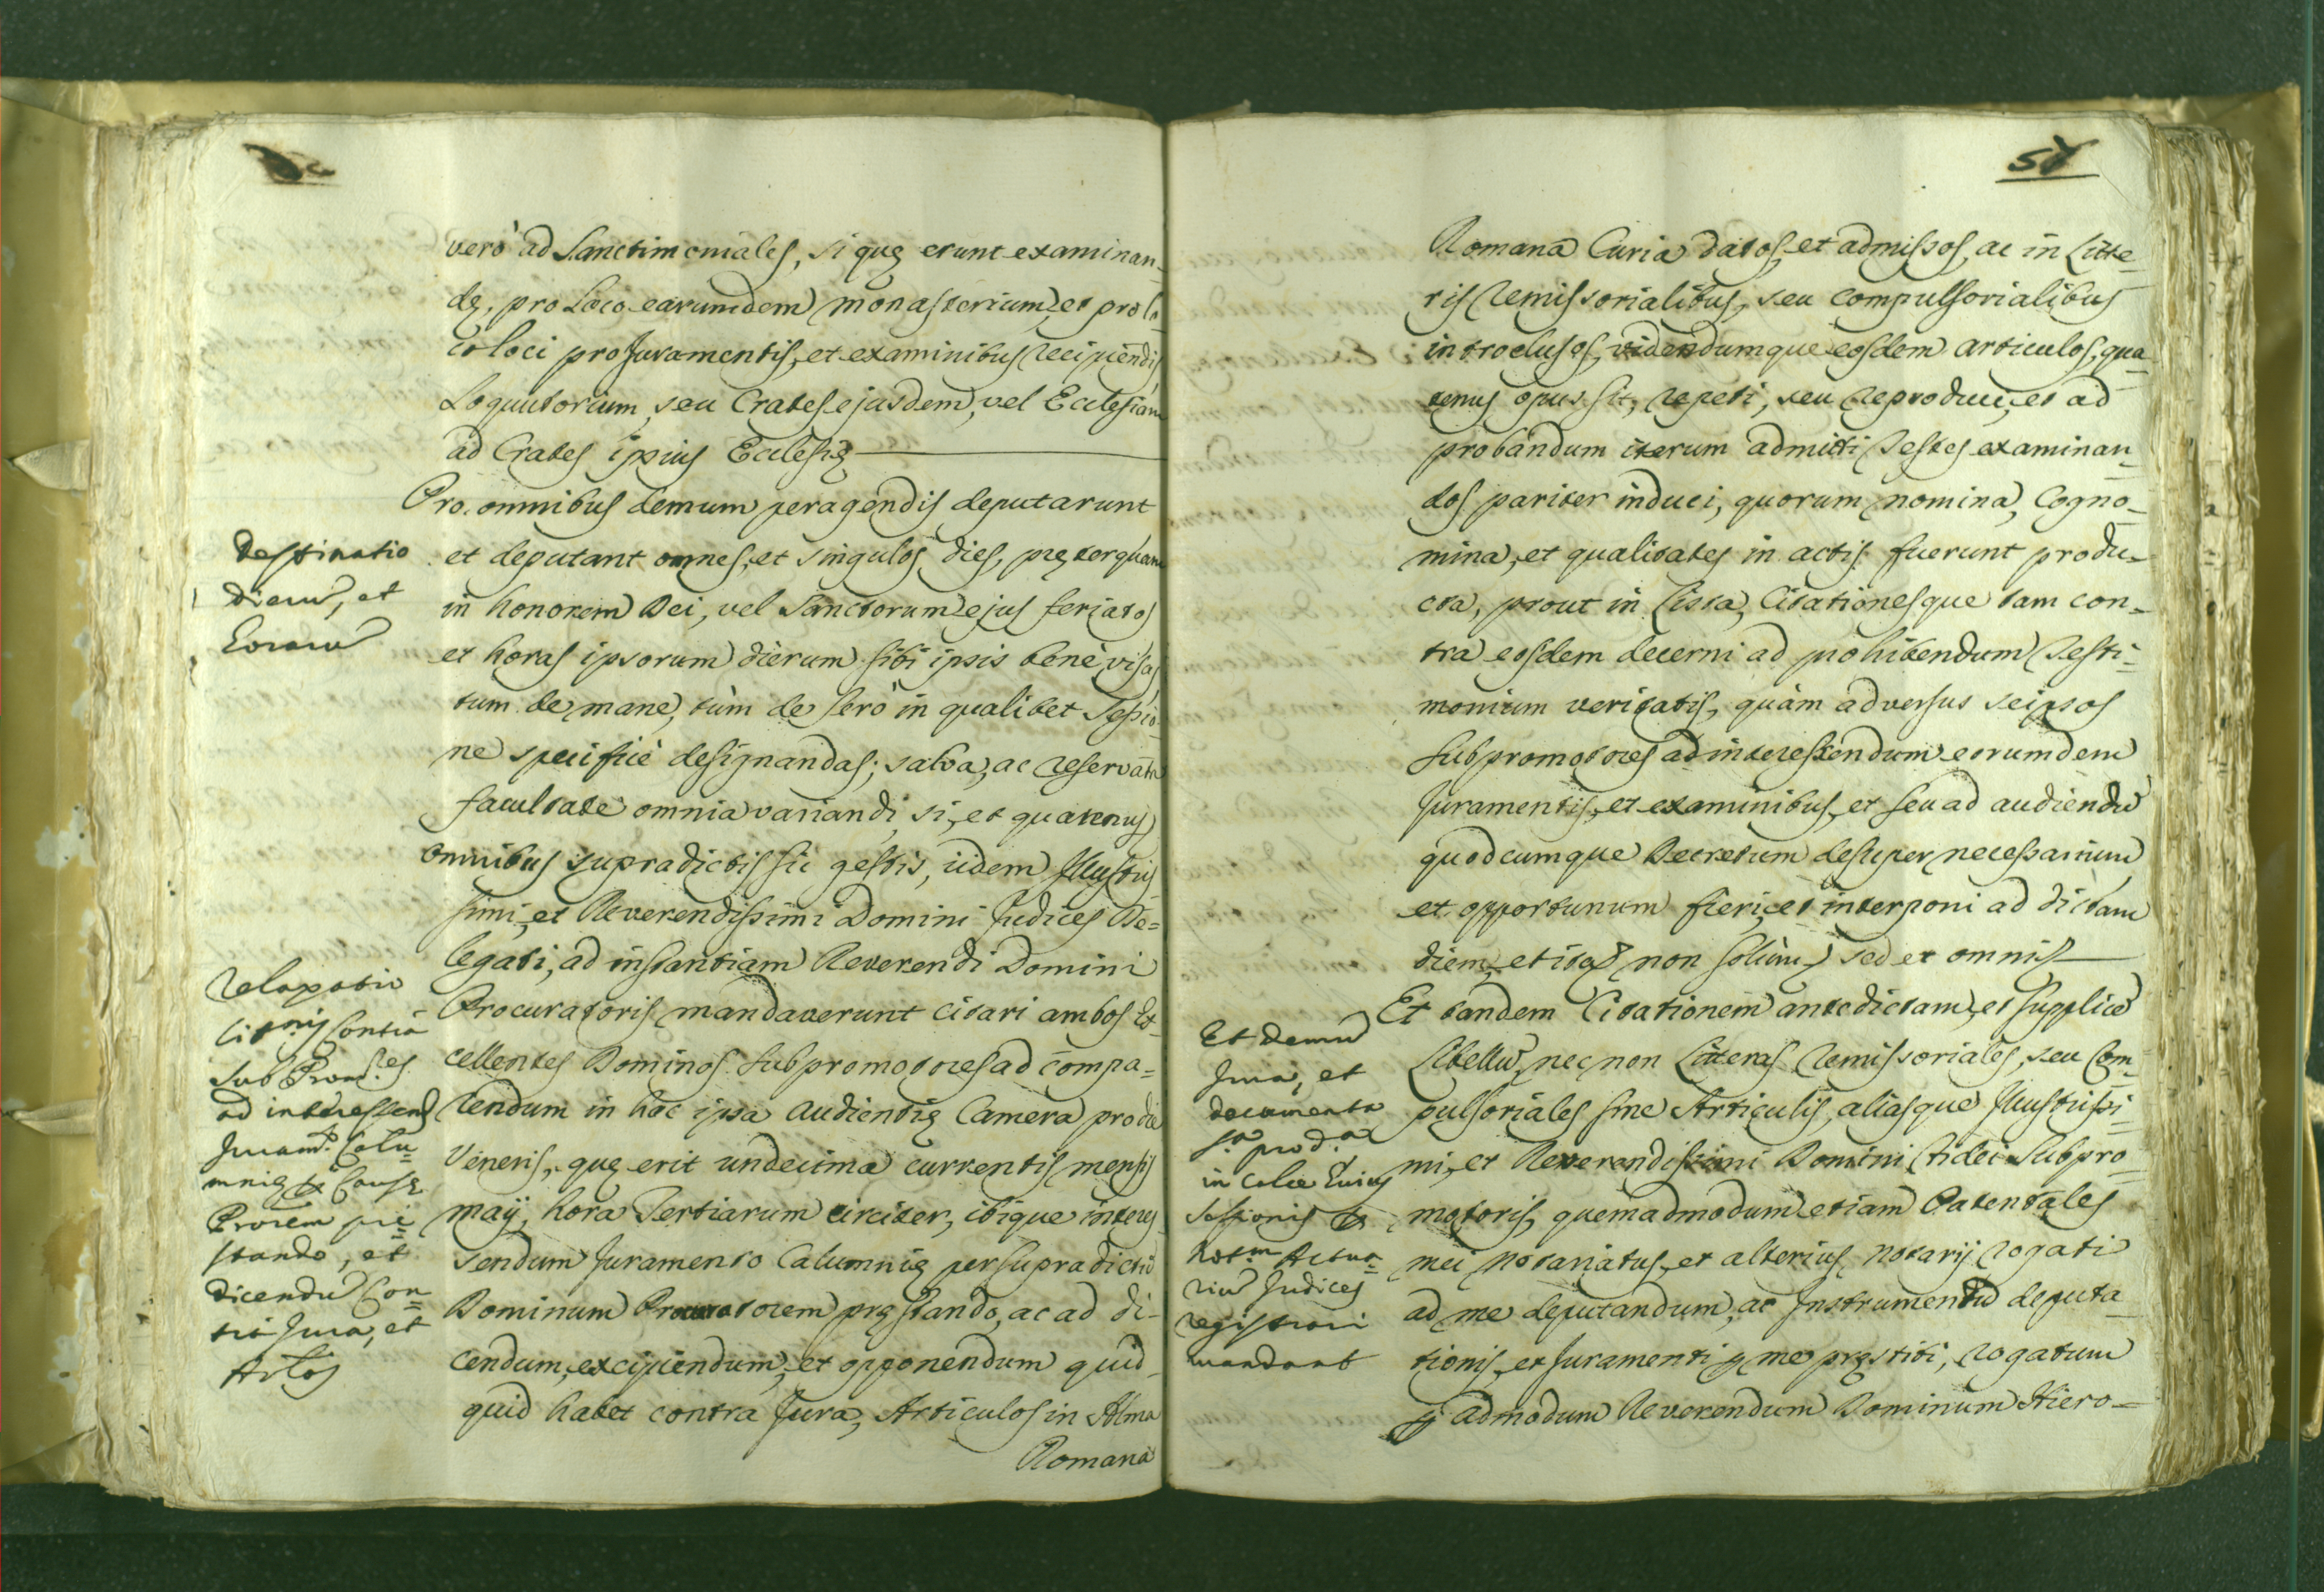 verò ad Sanctimoniales, si quę erunt examinan-
dę, pro Loco earumdem monasterium, et pro lo-
co loci pro Juramentis, et examinibus recipiendis
Loquutorium, seu Crates ejusdem, vel Ecclesiam
ad Crates ipsius Ecclesię
Pro omnibus demum peragendis deputarunt
et deputant omnes, et singulos dies, pręterquam
in honorem Dei, vel Sanctorum ejus feriatos
et horas ipsorum dierum sibi ipsis benè visas
tum de mane, tùm de serò in qualibet Sessio-
ne specificè designandas; salva, ac reservata
facultate omnia variandi, si, et quatenus
Omnibus supradictis sic gestis, iidem Illustris-
simi, et Reverendissimi Domini Judices De=
legati, ad instantiam Reverendi Domini
Procuratoris mandaverunt citari ambos Ex-
cellentes Dominos Subpromotores ad compa=
rendum in hac ipsa Audientię Camera pro die
Veneris, quę erit undecima currentis mensis
maÿ, hora Tertiarum circiter, ibique interes-
sendum Juramento Calumnię per supradictũ
Dominum Procuratorem pręstando, ac ad di-
cendum, excipiendum, et opponendum quid-
quid habet contra Jura, Articulos in Alma
Romana
Destinatio
dierũ, et
horarũ
Relaxatio
cit.nis contra
Sub Prom.res
ad interessend
Juram.to Calu=
mnię
Prorem prę=
stando, et
dicendũ Con=
tra Jura, et
Artos
58
Romana Curia datos, et admissos, ac in Litte-
ris remissorialibus, seu compulsorialibus
introclusos, videndumque eosdem articulos, qua-
tenus opus sit, repeti, seu reproduci, et ad
probandum iterum admitti Testes examinan-
dos pariter induci, quorum nomina, Cogno-
mina, et qualitates in actis fuerunt produ-
cta, prout in Lista, Citationesque tam con-
tra eosdem decerni ad prohibendum Testi-
monium veritatis, quàm adversus seipsos
Subpromotores ad interessendum eorumdem
Juramentis, et examinibus, et seu ad audiendũ
quodcumque Decretum desuper necessarium
et opportunum fieri, et interponi ad dictam
diem, et itaq non solùm, sed et omnis
Et tandem Citationem antedictam, et supplicẽ
Libellũ, nec non Litteras remissoriales, seu Com-
pulsoriales sine Articulis, aliasque Illustrissi-
mi, et Reverendissimi Domini Fidei Subpro-
motoris, quemadmodum etiam Patentales
mei Notariatus, et alterius Notarÿ rogati
ad me deputandum, ac Instrumentũ deputa-
tionis, et Juramenti p me pręstiti, rogatum
p admodum Reverendum Dominum Hiero=
Et demũ
Jura, et
documenta
s.a prod.a
in calce huius
Sessionis
Not.m Actua=
riũ Judices
registrari
mandant